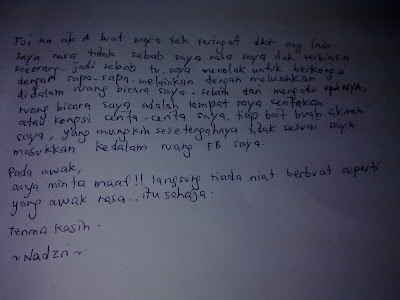 Tapi knp A buat saya tak teringat dkt org lain.
saya rasa tidak sebab saya rasa saya dah terbiasa
seorang - jadi sebab tu, saya menolak untuk berkongsi
dengan sapa-sapa. melainkan dengan meluahkan
didalam ruang bicara saya - selain dari mengadu kpd NYA.
ruang bicara saya adalah tempat saya ceritakan
atau kongsi cerita-cerita saya, tiap bait buah fikiran
saya, yang mungkin sesetengahnya tidak sesuai saya
masukkan kedalam ruang FB saya.
Pada awak,
saya minta maaf!! langsung tiada niat berbuat seperti
yang awak rasa.. itu sahaja.
Terima kasih.
~Nadzri~